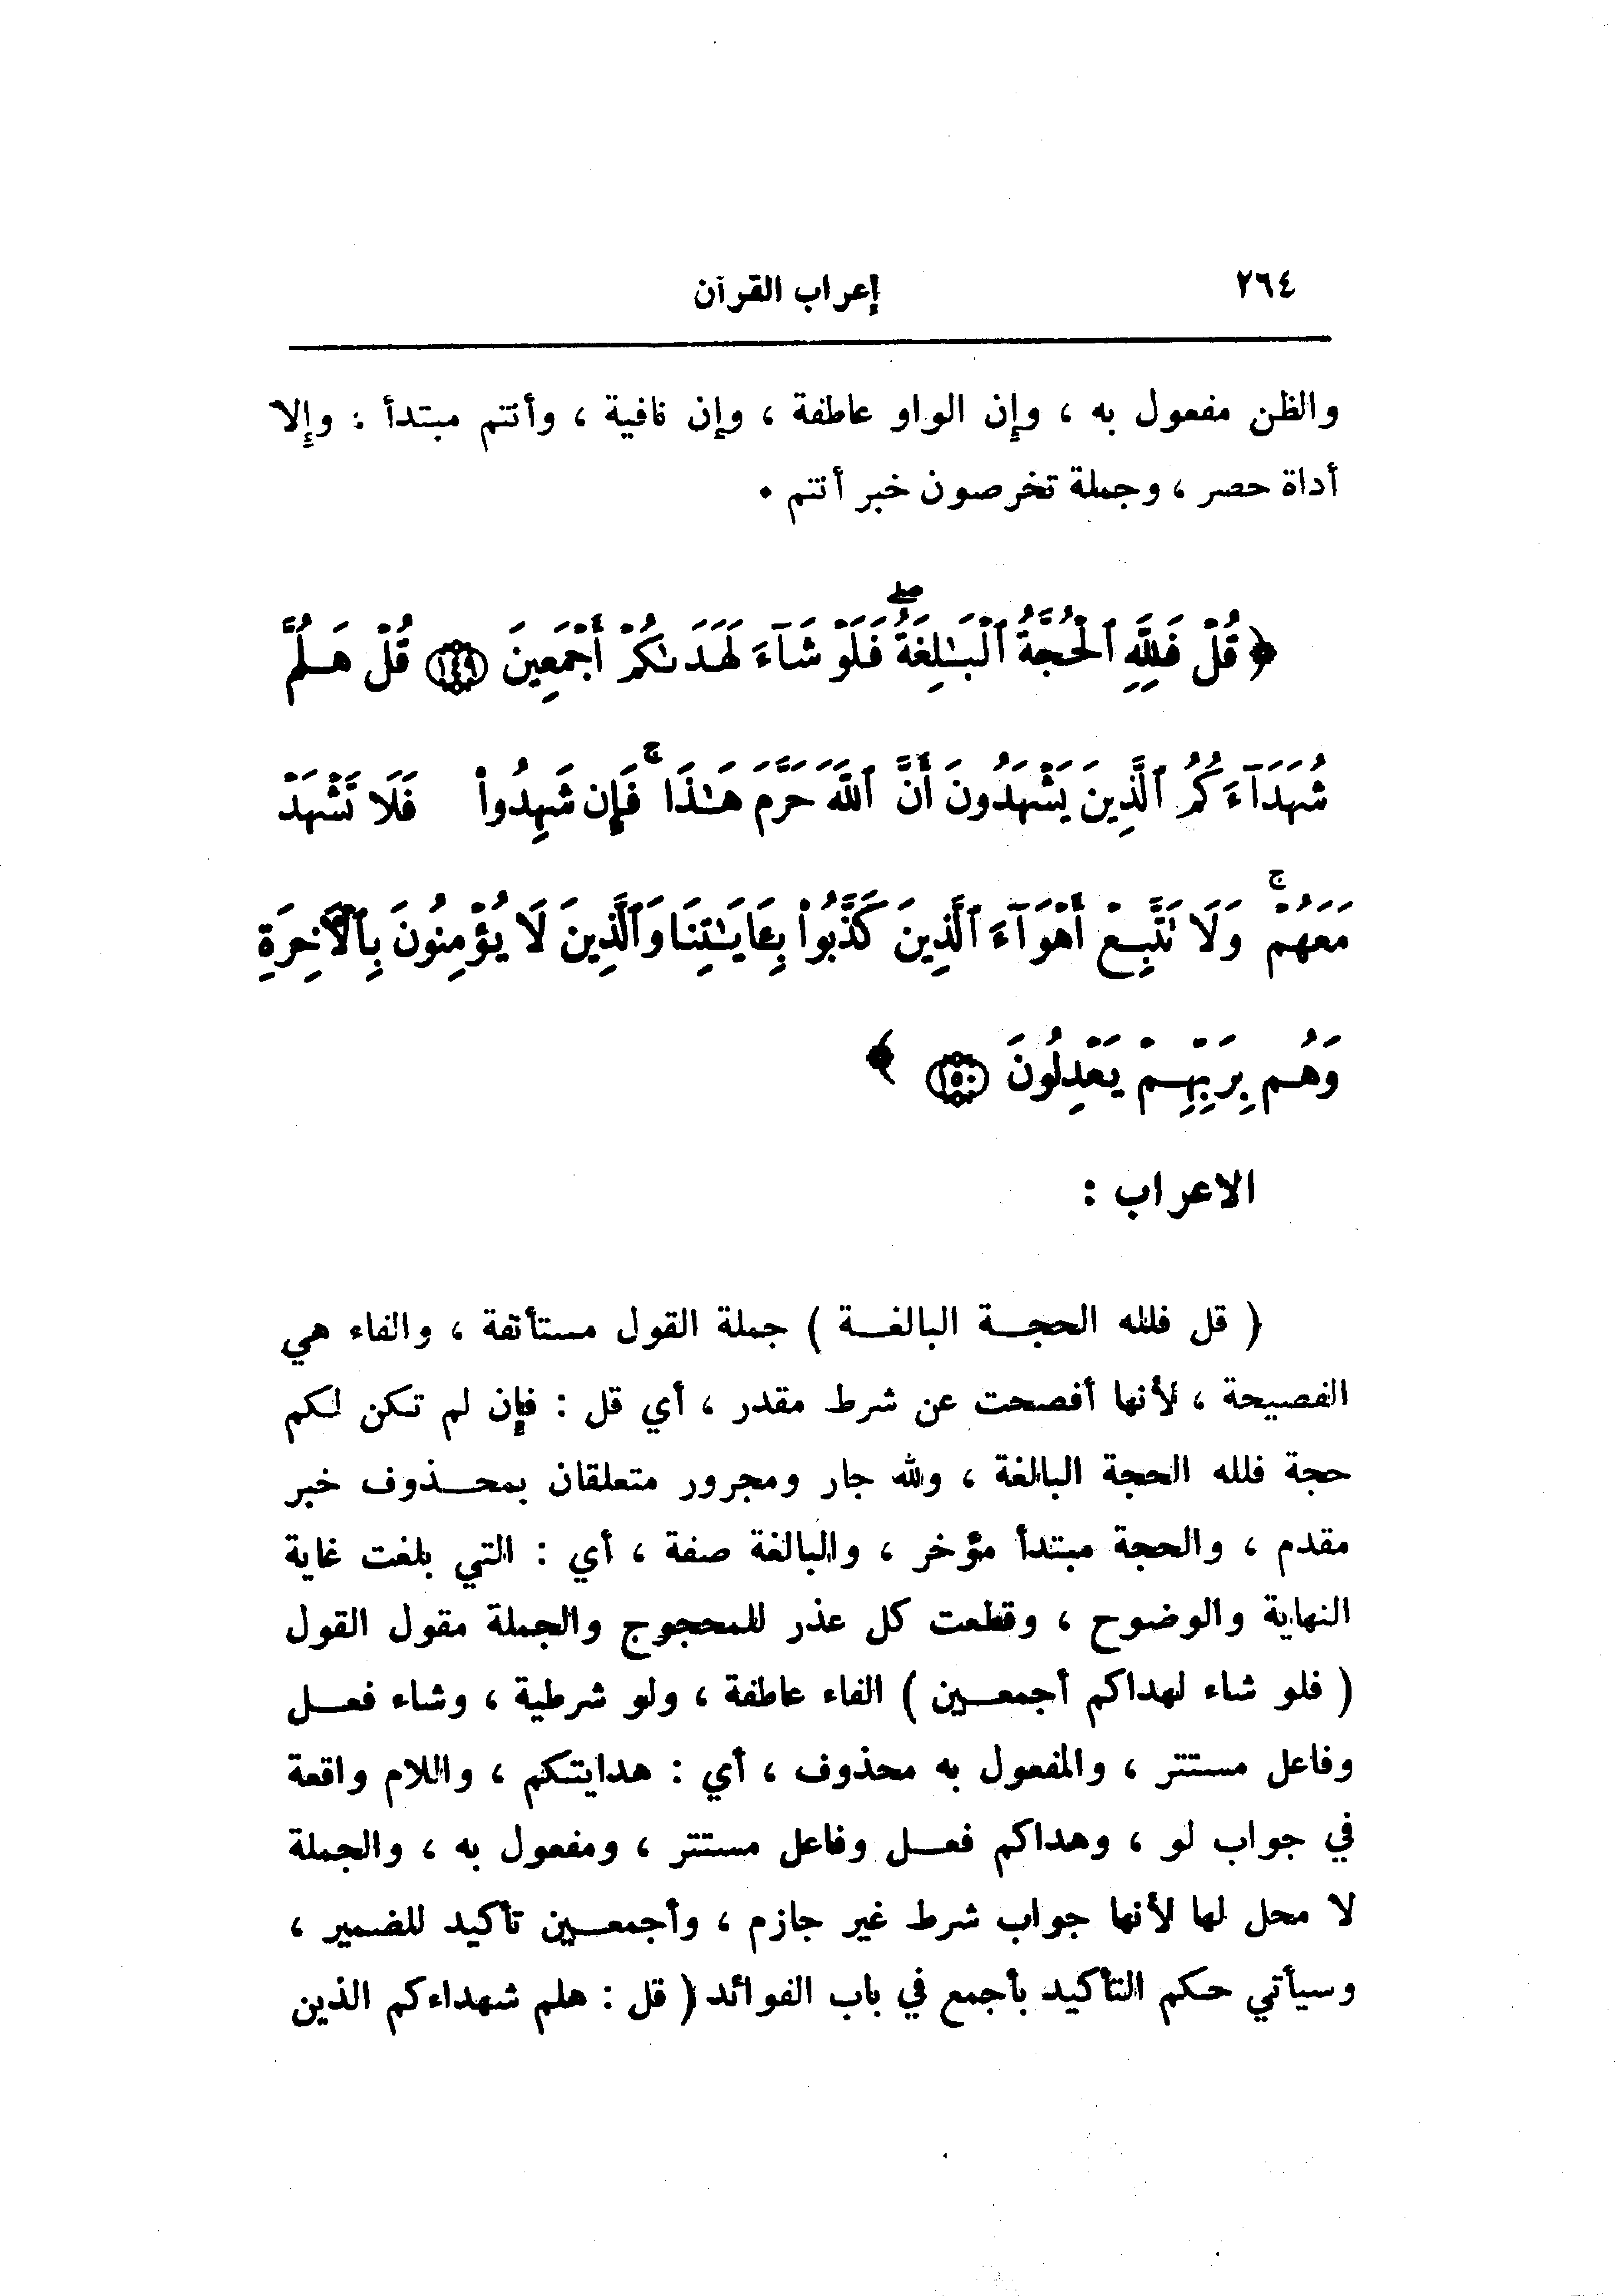 ٢٦٤ إعراب القرآن
والظن مفعول به ، وإن الواو عاطفة ، وإن نافية ، وأنتم مبتدأ ؛ وإلا
أداة حصر ، وجملة تخرصون خبر أنتم ٠
﴿ قُلْ فَلِلَّهِ ٱلْحُجَّةُ ٱلْبَـٰلِغَةُ ۖ فَلَوْ شَآءَ لَهَدَىٰكُمْ أَجْمَعِينَ ١٤٩ قُلْ هَلُمَّ
شُهَدَآءَكُمُ ٱلَّذِينَ يَشْهَدُونَ أَنَّ ٱللَّهَ حَرَّمَ هَـٰذَا ۚ فَإِن شَهِدُواْ فَلَا تَشْهَدْ
مَعَهُمْ ۚ وَلَا تَتَّبِعْ أَهْوَآءَ ٱلَّذِينَ كَذَّبُواْ بِـَٔايَـٰتِنَا وَٱلَّذِينَ لَا يُؤْمِنُونَ بِٱلْأَخِرَةِ
وَهُم بِرَبِّهِمْ يَعْدِلُونَ ١٥٠ ﴾
الاعراب :
( قل فلله الحجـــة البالغـــة ) جملة القول مستأنفة ، والفاء هي
الفصيحة ، لأنها أفصحت عن شرط مقدر ، أي قل : فإن لم تكن لكم
حجة فلله الحجة البالغة ، ولله جار ومجرور متعلقان بمحـــذوف خبر
مقدم ، والحجة مبتدأ مؤخر ، والبالغة صفة ، أي : التي بلغت غاية
النهاية والوضوح ، وقطعت كل عذر للمحجوج والجملة مقول القول
( فلو شاء لهداكم أجمعـــين ) الفاء عاطفة ، ولو شرطية ، وشاء فعـــل
وفاعل مستتر ، والمفعول به محذوف ، أي : هدايتكم ، واللام واقعة
في جواب لو ، وهداكم فعـــل وفاعل مستتر ، ومفعول به ، والجملة
لا محل لها لأنها جواب شرط غير جازم ، وأجمعـــين تأكيد للضمير ،
وسيأتي حكم التأكيد بأجمع في باب الفوائد ( قل : هلم شهداءكم الذين